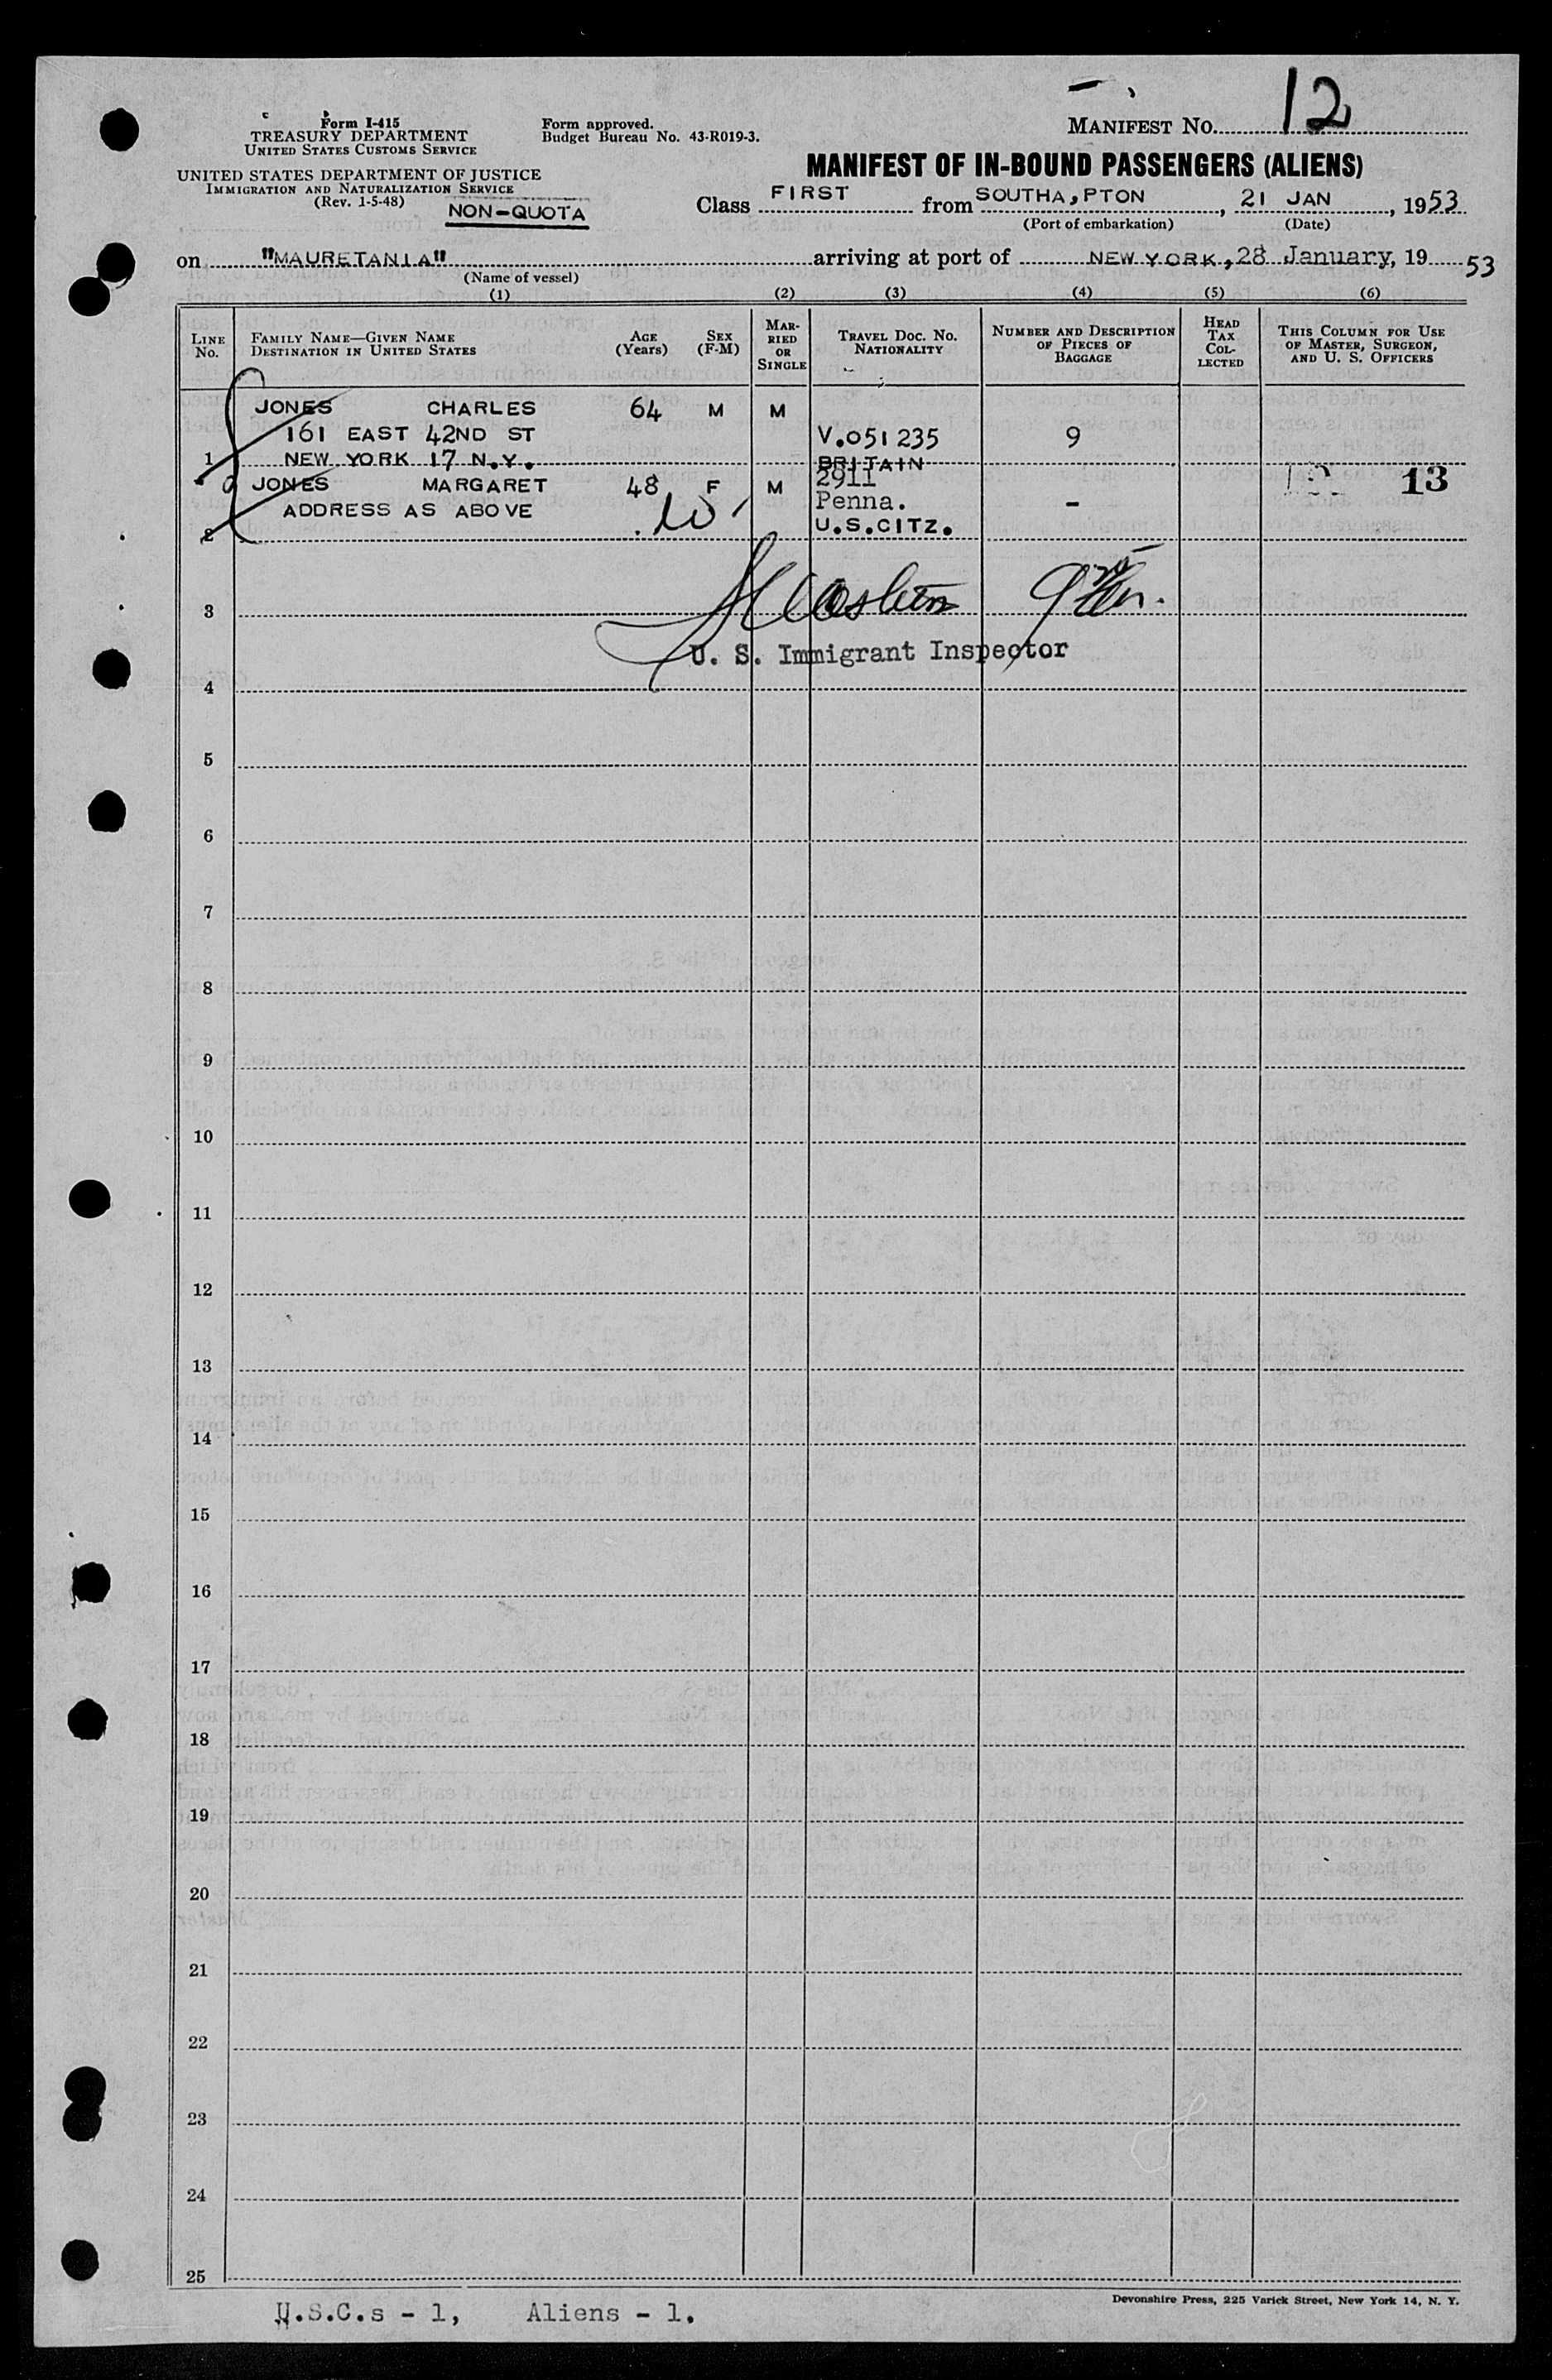 Form I-415
TREASURY DEPARTMENT
UNITED STATES CUSTOMS SERVICE
UNITED STATES DEPARTMENT OF JUSTICE
IMMIGRATION AND NATURALIZATION SERVICE
(Rev. 1-5-48)
NON-QUOTA
Form approved.
Budget Bureau No. 43-R019-3.
MANIFEST No. 12
MANIFEST OF IN-BOUND PASSENGERS (ALIENS)
Class FIRST from SOUTHA,PTON, 21 JAN, 1953
(Port of embarkation) (Date)
on "MAURETANIA" arriving at port of NEW YORK, 28 January, 19 53
(Name of vessel)
(1) (2) (3) (4) (5) (6)
LINE No.
FAMILY NAME—GIVEN NAME
DESTINATION IN UNITED STATES
AGE (Years)
SEX (F-M)
MARRIED OR SINGLE
TRAVEL DOC. NO.
NATIONALITY
NUMBER AND DESCRIPTION OF PIECES OF BAGGAGE
HEAD TAX COLLECTED
THIS COLUMN FOR USE OF MASTER, SURGEON, AND U. S. OFFICERS
JONES CHARLES 64 M M
161 EAST 42ND ST V.051235 9
1 NEW YORK 17 N.Y. BRITAIN
JONES MARGARET 48 F M 2911 13
ADDRESS AS ABOVE Penna. -
2 U.S.CITZ.
3
U. S. Immigrant Inspector
4
5
6
7
8
9
10
11
12
13
14
15
16
17
18
19
20
21
22
23
24
25
U.S.C.s - 1, Aliens - 1.
Devonshire Press, 225 Varick Street, New York 14, N. Y.